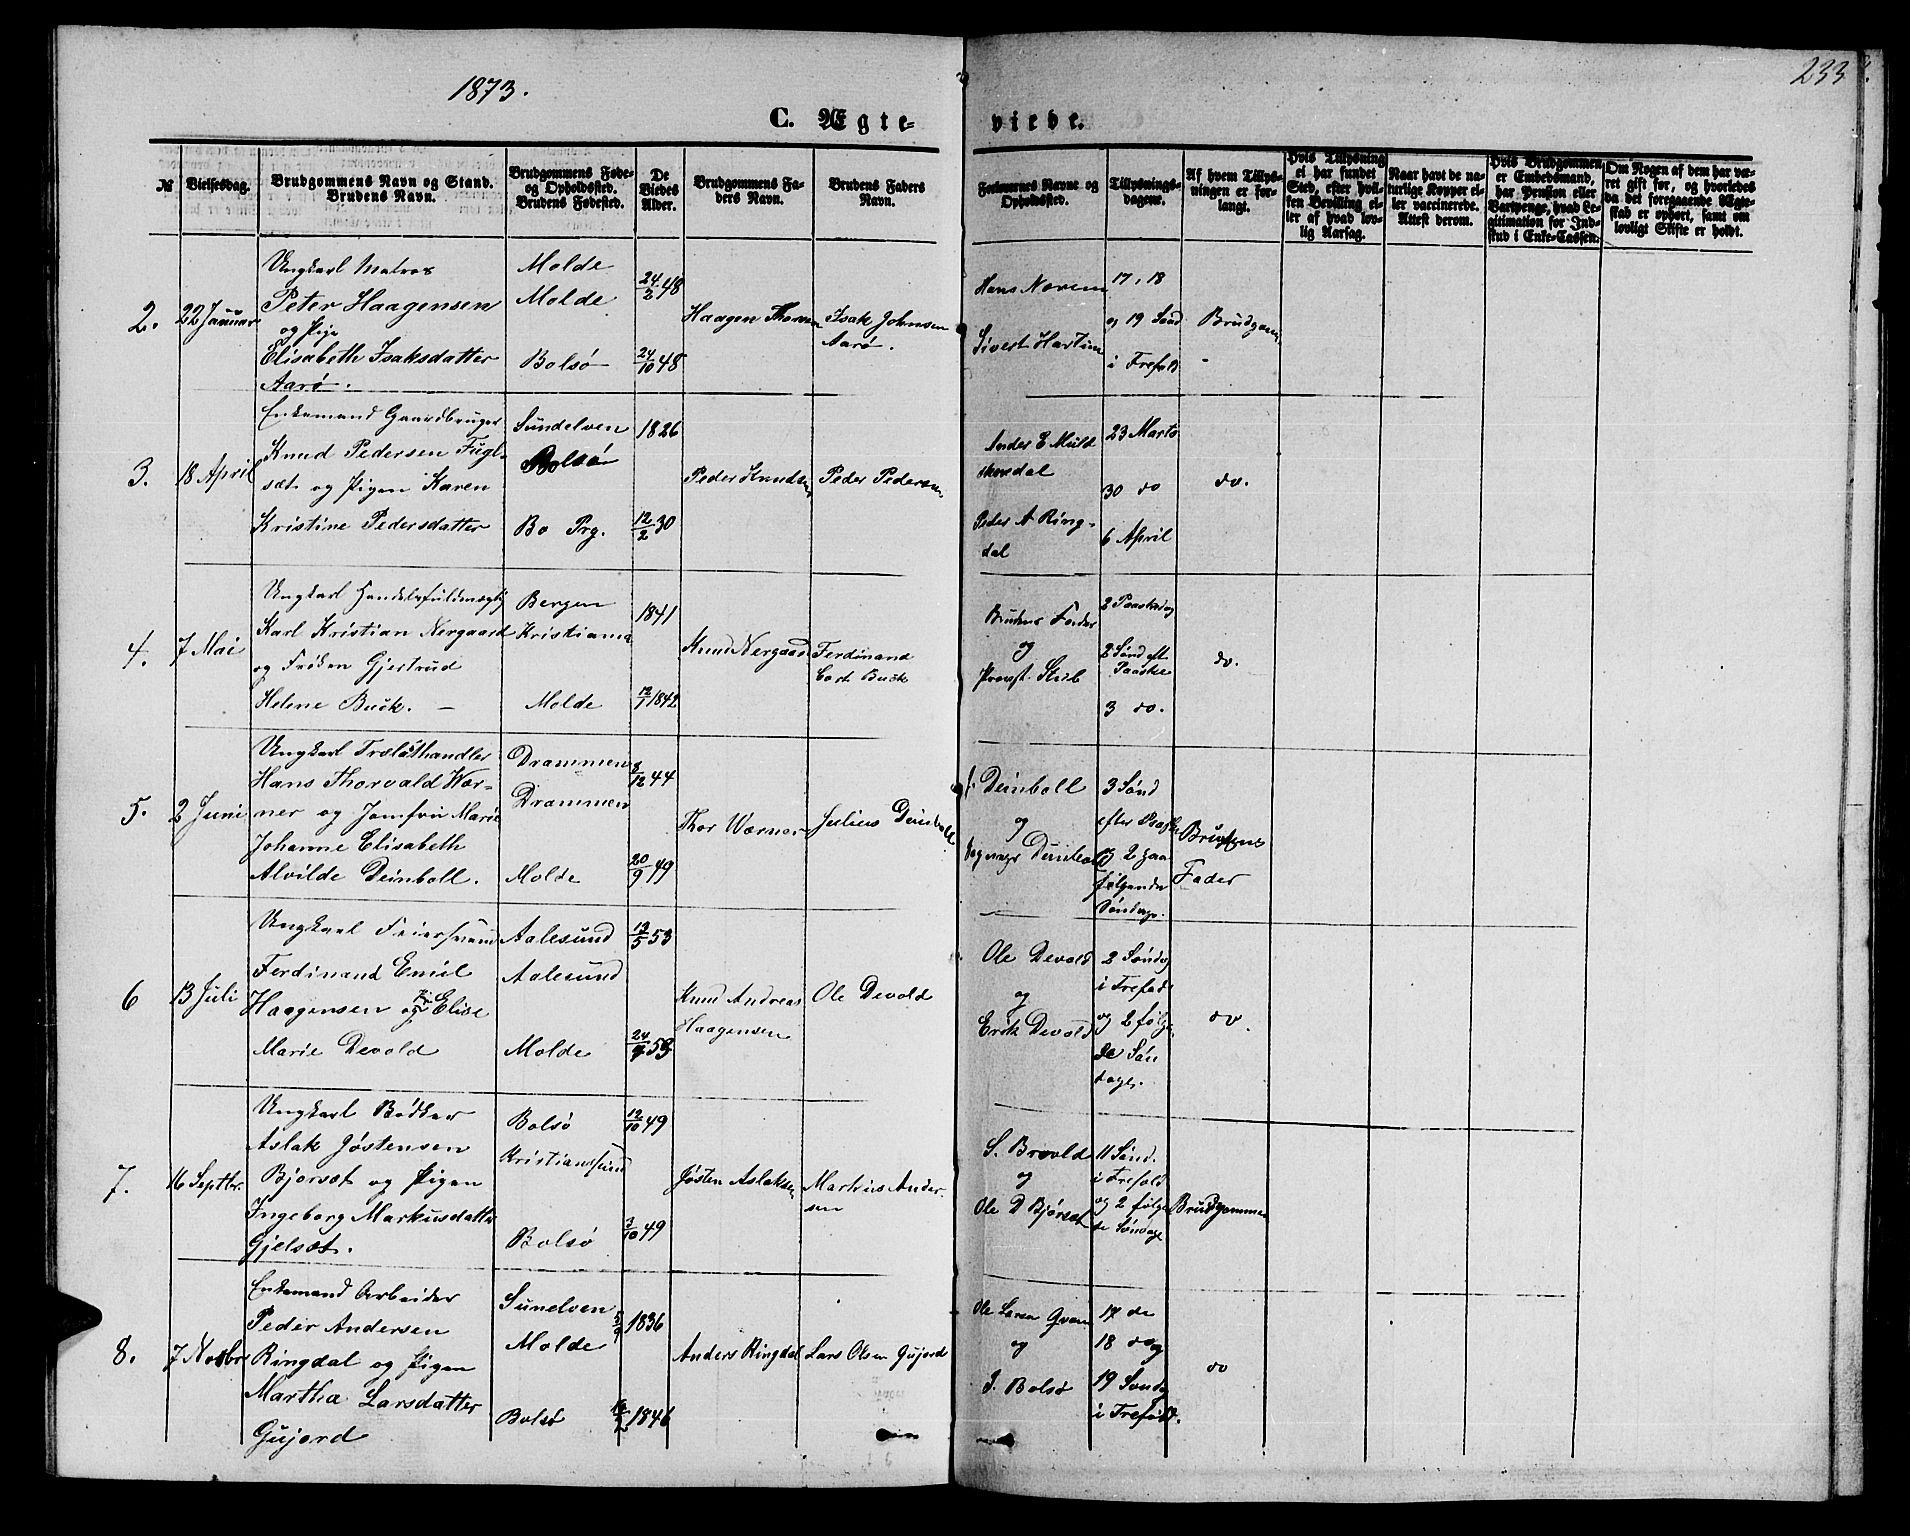 1873.
233
C. Ægteviede.
№
Vielsesdag.
Brudgommens Navn og Stand.
Brudens Navn.
Brudgommens Føde- og Opholdssted.
Brudens Fødested.
De Viedes Alder.
Brudgommens Faders Navn.
Brudens Faders Navn.
Forlovernes Navne og Opholdssted.
Tillysningsdagene.
Af hvem Tillysningen er forlangt.
Hvis Tillysning ei har fundet Sted, efter hvilken Bevilling eller af hvad lovlig Aarsag.
Naar havt de naturlige Kopper eller vaccinerede. Attest derom.
Hvis Brudgommen er Embedsmand, har Pension eller Vartpenge, hvad Legitimation for Indskud i Enke-Cassen.
Om Nogen af dem har været gift før, og hvorledes da det foregaaende Ægteskab er ophørt, samt om lovligt Skifte er holdt.
2.
22 Januar
Ungkarl Matros
Peter Haagensen
og Pige
Elisabeth Isaksdatter
Aarø.
Molde
Molde
Bolsø
24/2 48
24/10 48
Haagen
Isak Johnsen
Aarø.
Hans
Sivert
17, 18
og 19 Sønd
i Trefold
Brudgom
3.
18 April
Enkemand Gaardbruger
Knud Pedersen Fugl-
sæt og Pigen Karen
Kristine Pedersdatter
Sundelven
Bolsø
Bo Prg.
1826
12/2 30
Peder Knudsen
Peder Pedersen
Anders E
Peder A Ring-
dal
23 Marts
30 do
6 April
do.
4.
7 Mai
Ungkarl Handelsfuldmægtig
Karl Kristian Nergaard
og Frøken Gjertrud
Helene Buck. –
Bergen
Kristiania
Molde
1841
12/7 1842
Knud Nergaard
Ferdinand
Carl Buck
Brudens Fader
og
Provst
2 Paaskedag
2 Sønd eft
Paaske
3 do.
do.
5.
2 Juni
Ungkarl Trælasthandler
Hans Thorvald Wær-
ner og Jomfru Marie
Johanne Elisabeth
Alvilde Deinboll.
Drammen
Drammen
Molde
8/12 44
20/9 49
Thor Wærner
Julius Deinboll
Deinboll
og
Deinboll
3 Sønd
efter Paaske
og 2 paa
følgende
Søndage.
Brudens
Fader
6
13 Juli
Ungkarl
Ferdinand Emil
Haagensen og Pi Elise
Marie Devold
Aalesund
Aalesund
Molde
13/5 53
Knud Andreas
Haagensen
Ole Devold
Ole Devold
og
Erik Devold
2 Søndag
i Trefold
og 2 følgen
de Søn
dage.
do.
7.
16 Septbr.
Ungkarl Bødker
Aslak Jøstensen
Bjørsæt og Pigen
Ingeborg Markusdatter
Gjelsæt.
Bolsø
Kristianssund
Bolsø
12/10 49
3/10 49
Jøsten Aslaksen
Markus Ander-
sen
og
Ole D Bjørsæt
11 Sønd.
i Trefold
og 2 følgen
de Søndage
Brudgommen
8.
7 Novbr
Enkemand Arbeider
Peder Andersen
Ringdal og Pigen
Martha Larsdatter
Gujord
Sunelven
Molde
Bolsø
1836
1846
Anders Ringdal
Lars Olsen Gujord
Ole Larsen
og
17 de
18 do og
19 Søndag
i Trefold.
do